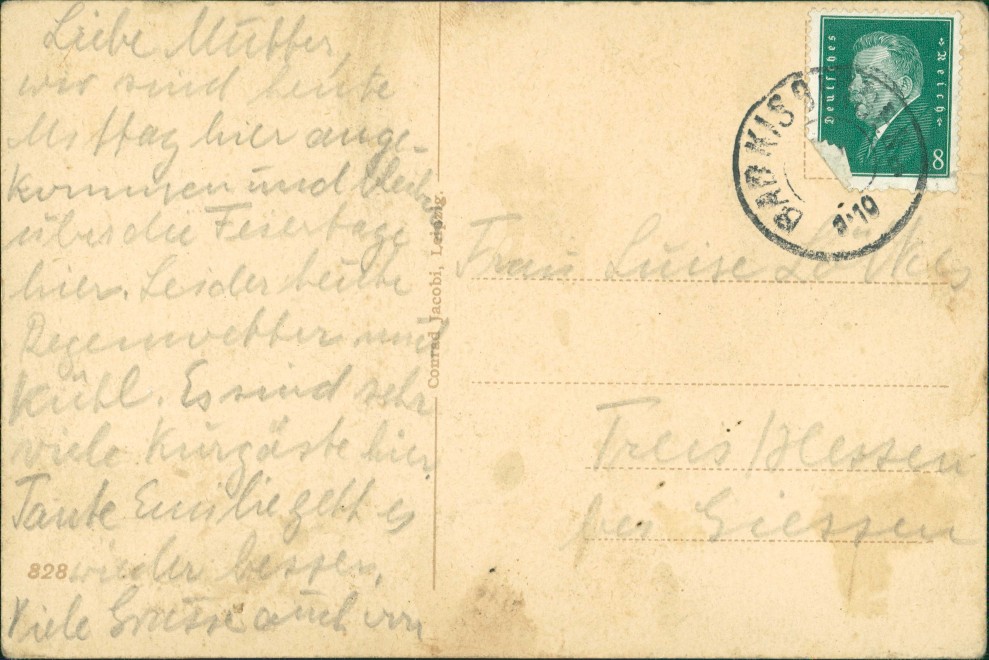 Liebe Mutter,
wir sind heute
Mittag hier ange-
kommen und bleiben
über die Feiertage
hier. Leider heute
Regenwetter und
kühl. Es sind sehr
viele Kurgäste hier
Tante Emilie geht es
wieder besser.
Viele Grüsse auch von
828
Conrad Jacobi, Leipzig.
Deutsches Reich
8
BAD KISS
Frau Luise
Treis/Hessen
bei Giessen